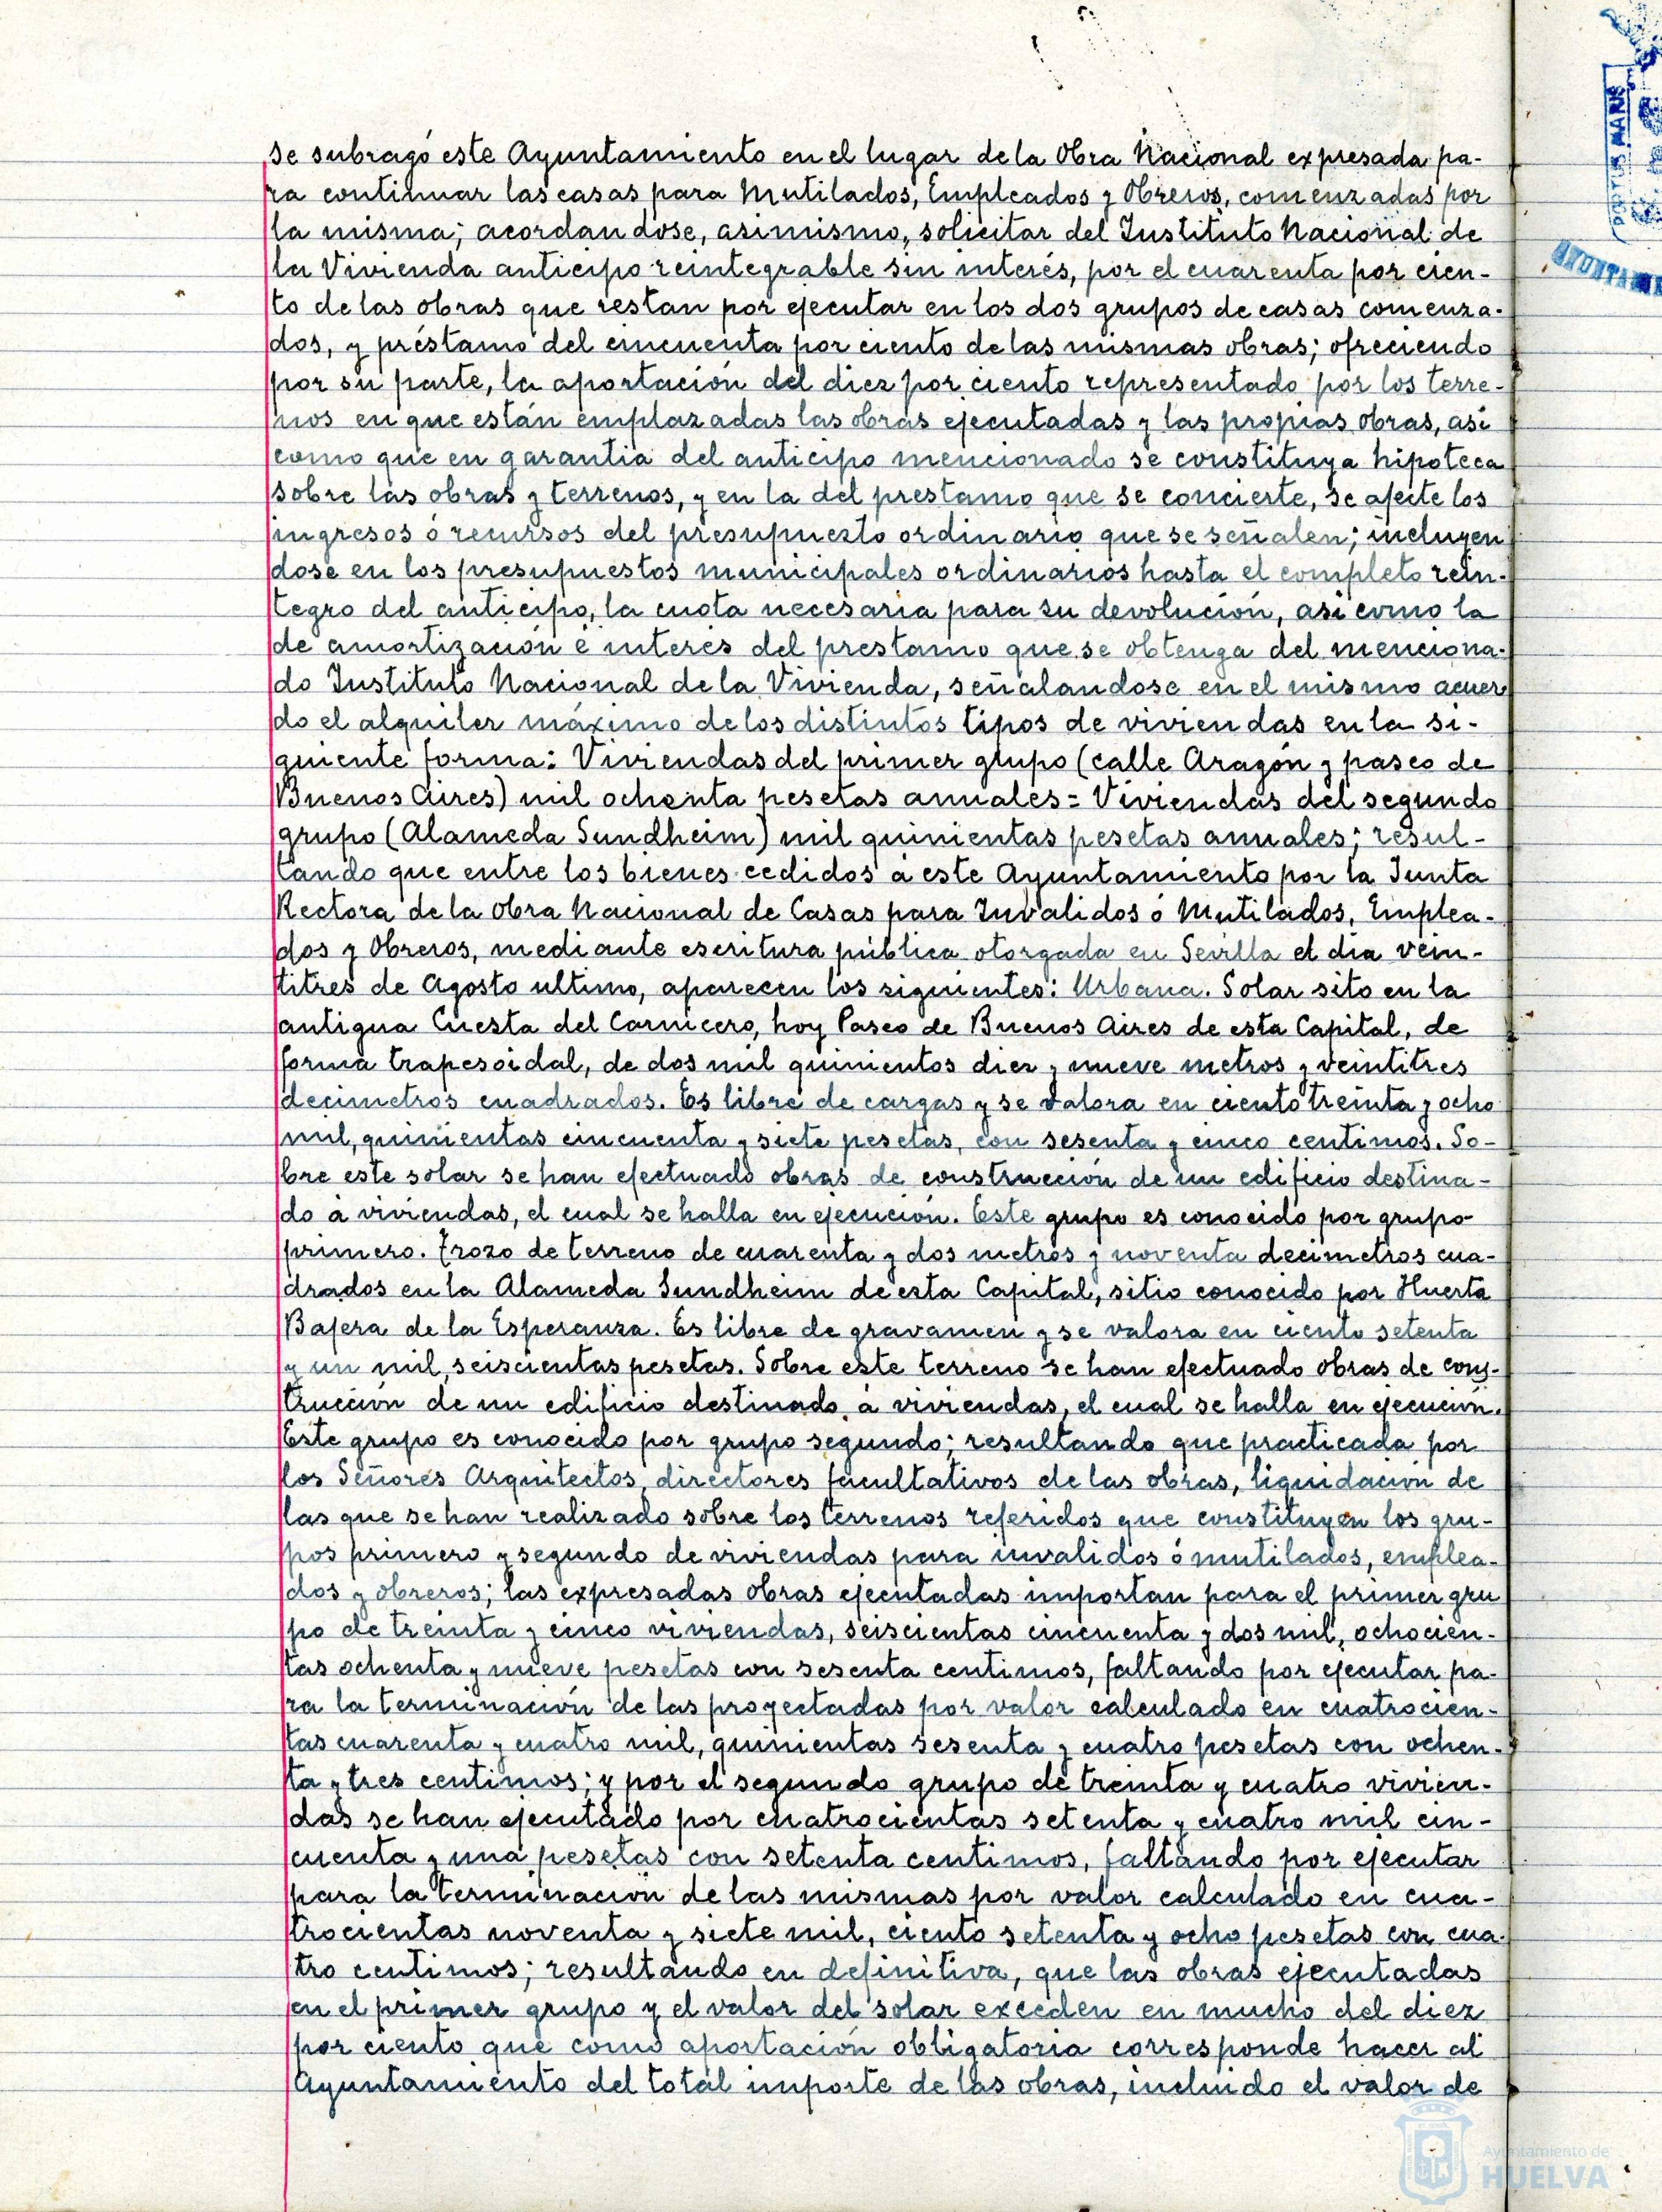 se subragó este Ayuntamiento en el lugar de la Obra Nacional expresada pa-
ra continuar las casas para Mutilados, Empleados y Obreros, comenzadas por
la misma; acordandose, asimismo, solicitar del Instituto Nacional de
la Vivienda anticipo reintegrable sin interés, por el cuarenta por cien-
to de las obras que restan por ejecutar en los dos grupos de casas comenza-
dos, y préstamo del cincuenta por ciento de las mismas obras; ofreciendo
por su parte, la aportación del diez por ciento representado por los terre-
nos en que están emplazadas las obras ejecutadas y las propias obras, así
como que en garantia del anticipo mencionado se constituya hipoteca
sobre las obras y terrenos, y en la del prestamo que se concierte, se afecte los
ingresos ó recursos del presupuesto ordinario que se señalen; incluyen
dose en los presupuestos municipales ordinarios hasta el completo rein-
tegro del anticipo, la cuota necesaria para su devolución, asi como la
de amortización é interés del prestamo que se obtenga del menciona-
do Instituto Nacional de la Vivienda, señalandose en el mismo acuer
do el alquiler máximo de los distintos tipos de viviendas en la si-
guiente forma: Viviendas del primer grupo (calle Aragón y paseo de
Buenos Aires) mil ochenta pesetas anuales = Viviendas del segundo
grupo (Alameda Sundheim) mil quinientas pesetas anuales; resul-
tando que entre los bienes cedidos a este Ayuntamiento por la Junta
Rectora de la Obra Nacional de Casas para Invalidos ó Mutilados, Emplea-
dos y Obreros, mediante escritura pública otorgada en Sevilla el dia vein-
titres de Agosto ultimo, aparecen los siguientes: Urbana. Solar sito en la
antigua Cuesta del Carnicero, hoy Paseo de Buenos Aires de esta Capital, de
forma trapesoidal, de dos mil quinientos diez y nueve metros y veintitres
decimetros cuadrados. Es libre de cargas y se valora en ciento treinta y ocho
mil, quinientas cincuenta y siete pesetas, con sesenta y cinco centimos. So-
bre este solar se han efectuado obras de construcción de un edificio destina-
do á viviendas, el cual se halla en ejecución. Este grupo es conocido por grupo
primero. Trozo de terreno de cuarenta y dos metros y noventa decimetros cua-
drados en la Alameda Sundheim de esta Capital, sitio conocido por Huerta
Bajera de la Esperanza. Es libre de gravamen y se valora en ciento setenta
y un mil, seiscientas pesetas. Sobre este terreno se han efectuado obras de cons-
trucción de un edificio destinado á viviendas, el cual se halla en ejecución.
Este grupo es conocido por grupo segundo; resultando que practicada por
los Señores Arquitectos, directores facultativos de las obras, liquidación de
las que se han realizado sobre los terrenos referidos que constituyen los gru-
pos primero y segundo de viviendas para invalidos ó mutilados, emplea-
dos y obreros; las expresadas obras ejecutadas importan para el primer gru
po de treinta y cinco viviendas, seiscientas cincuenta y dos mil, ochocien-
tas ochenta y nueve pesetas con sesenta centimos, faltando por ejecutar pa-
ra la terminación de las proyectadas por valor calculado en cuatrocien-
tas cuarenta y cuatro mil, quinientas sesenta y cuatro pesetas con ochen-
ta y tres centimos; y por el segundo grupo de treinta y cuatro vivien-
das se han ejecutado por cuatrocientas setenta y cuatro mil cin-
cuenta y una pesetas con setenta centimos, faltando por ejecutar
para la terminación de las mismas por valor calculado en cua-
trocientas noventa y siete mil, ciento setenta y ocho pesetas con cua-
tro centimos; resultando en definitiva, que las obras ejecutadas
en el primer grupo y el valor del solar exceden en mucho del diez
por ciento que como aportación obligatoria corresponde hacer al
Ayuntamiento del total importe de las obras, incluido el valor de
Ayuntamiento de
HUELVA